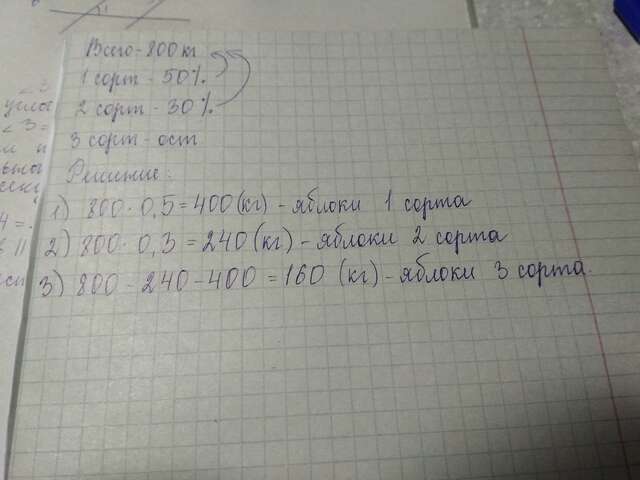 Всего - 800 кг
1 сорт - 50%
2 сорт - 30%
3 сорт - ост
Решение:
1) 800 · 0,5 = 400 (кг) - яблоки 1 сорта
2) 800 · 0,3 = 240 (кг) - яблоки 2 сорта
3) 800 - 240 - 400 = 160 (кг) - яблоки 3 сорта.